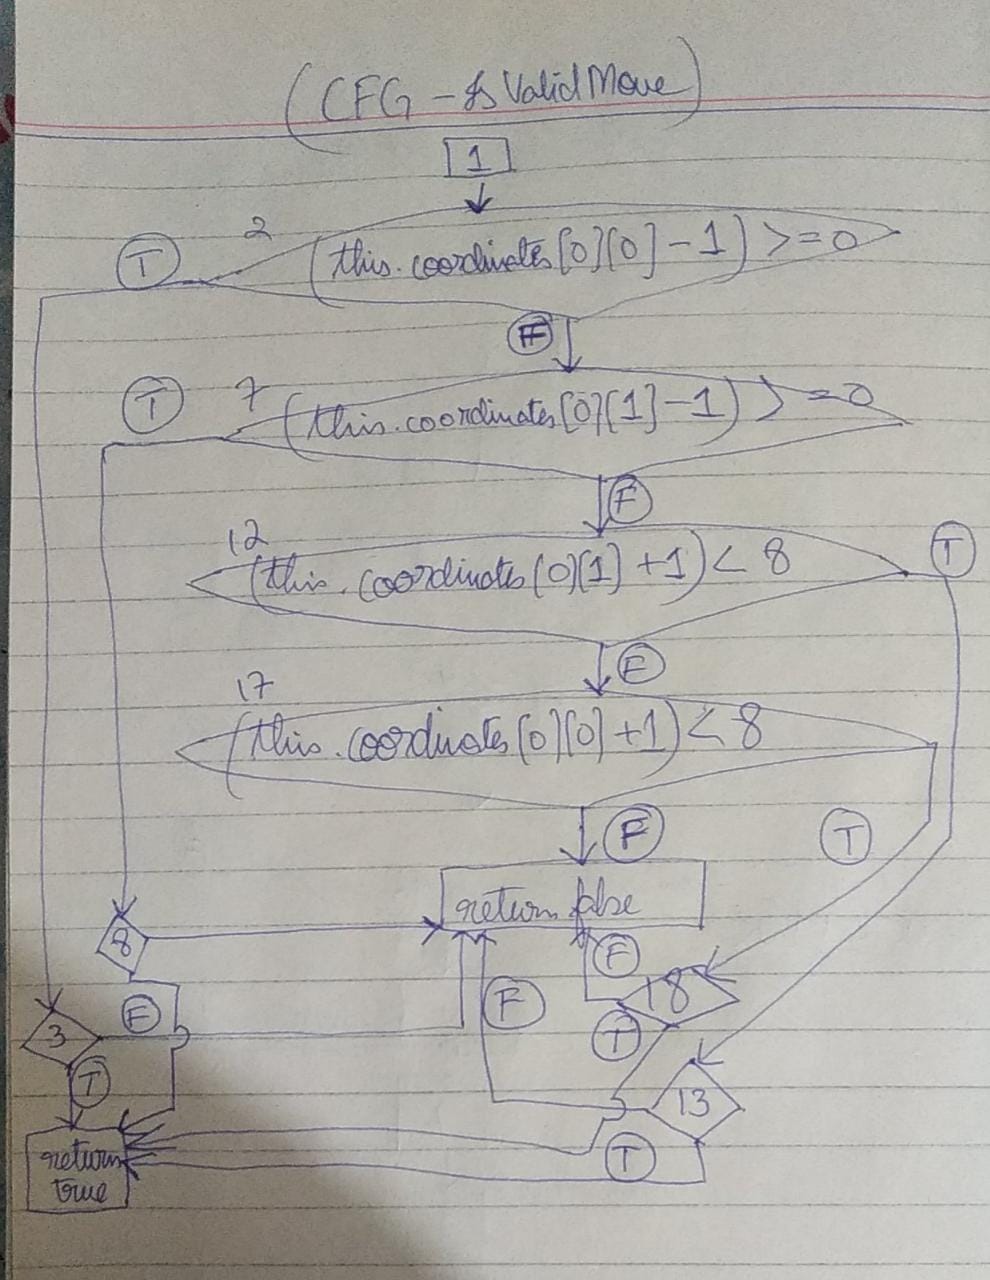 (CFG - IsValidMove)
1
2
T
(this.coordinates[0][0]-1) >=0
F
T
7
(this.coordinates[0][1]-1) >=0
F
12
T
(this.coordinates[0][1]+1) < 8
F
17
(this.coordinates[0][0]+1) < 8
F
T
return false
8
F
18
F
F
3
T
T
13
T
return
true